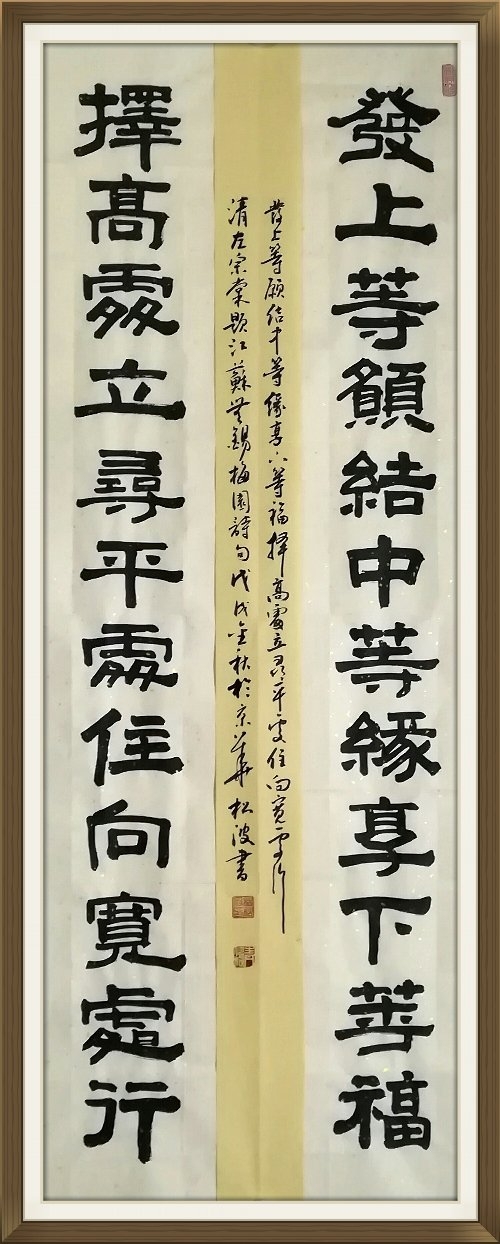 發上等願結中等緣享下等福
擇高處立尋平處住向寬處行
發上等願结中等緣享下等福擇高處立尋平處住向寬處行
清左宗棠題江蘇無錫梅園詩句戊戌金秋於京華松波書